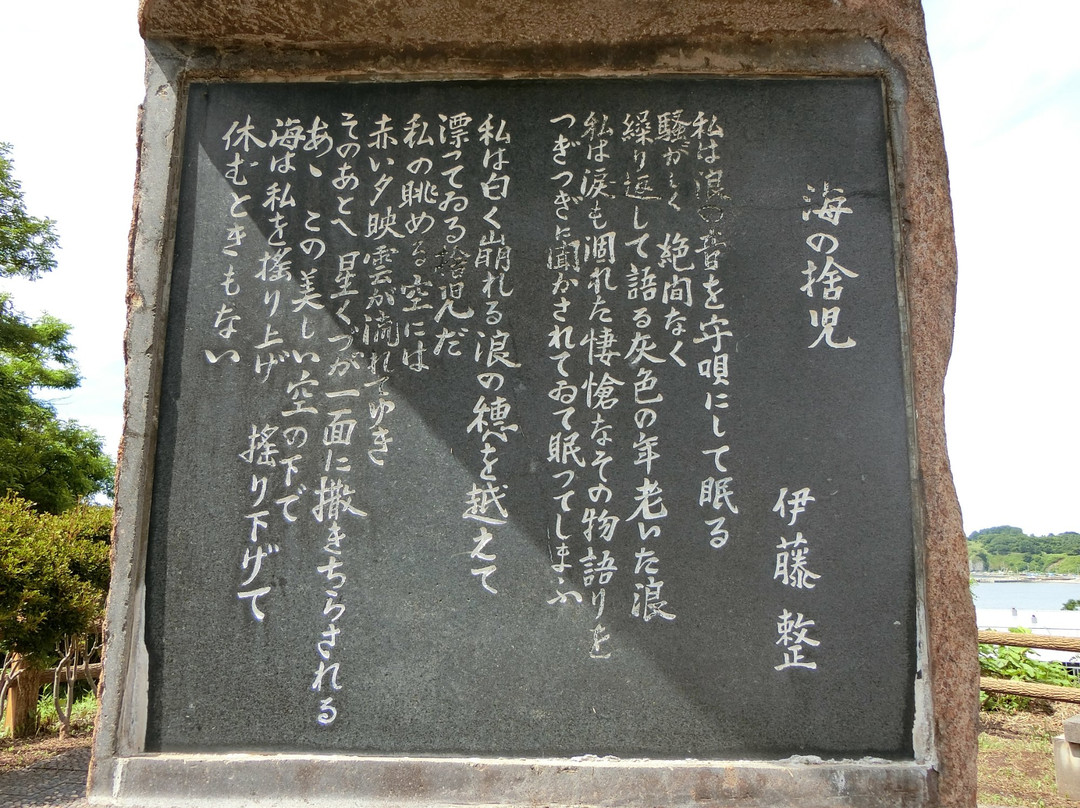 海の捨児
伊藤整
私は浪の音を守唄にして眠る
騒がしく 絶間なく
繰り返して語る灰色の年老いた浪
私は涙も涸れた悽愴なその物語りを
つぎつぎに聞かされてゐて眠つてしまふ
私は白く崩れる浪の穂を越えて
漂つてゐる捨児だ
私の眺める空には
赤い夕映雲が流れてゆき
そのあとへ 星くづが一面に撒きちらされる
あゝ この美しい空の下で
海は私を揺り上げ 揺り下げて
休むときもない